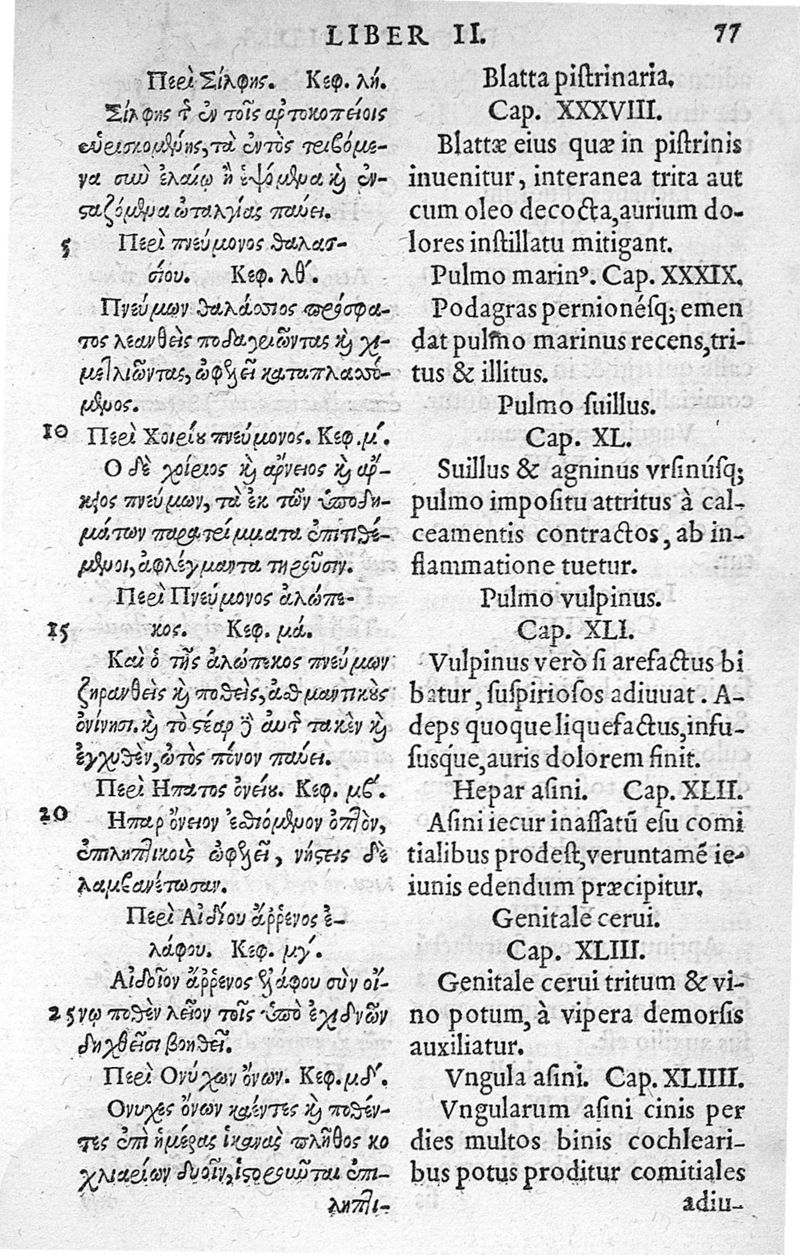 LIBER II. 77
Περὶ Σίλφης. Κεφ. λή.
Σίλφης τῆς ἐν τοῖς ἀρτοκοπείοις
εὑρισκομένης, τὰ ἐντὸς τριβόμε-
να σιω ἐλαίῳ ἢ ἑψόμενα καὶ ἐν-
σαζόμενα ὠταλγίας παύει.
5 Περὶ πνεύμονος θαλασ-
σίου. Κεφ. λθ΄.
Πνεύμων θαλάσσιος πρόσφα-
τος λεανθεὶς ποδαγριῶντας καὶ χι-
μετλιῶντας, ὠφελεῖ καταπλασσό-
μενος.
10 Περὶ Χοιρίου πνεύμονος. Κεφ. μ΄.
Ο δὲ χοίριος καὶ ἄρνειος καὶ ἄρ-
κειος πνεύμων, τὰ ἐκ τῶν ὑποδη-
μάτων παρατρίμματα ἐπιτιθέ-
μενοι, ἀφλέγμαντα τηροῦσιν.
Περὶ Πνεύμονος ἀλώπε-
15 κος. Κεφ. μά.
Καὶ ὁ τῆς ἀλώπεκος πνεύμων
ξηρανθεὶς καὶ ποθεὶς, ἀσθματικοὺς
ὀνίνησι. καὶ τὸ στέαρ δ᾽ αὐτῆς τακὲν καὶ
ἐγχυθὲν, ὠτὸς πόνον παύει.
Περὶ Ηπατος ὀνείου. Κεφ. μβ΄.
20 Ηπαρ ὄνειον ἐσθιόμενον ὀπτὸν,
ἐπιληπτικοῖς ὠφελεῖ, νήστεις δὲ
λαμβανέτωσαν.
Περὶ Αἰδίου ἄῤῥενος ἐ-
λάφου. Κεφ. μγ΄.
Αἰδοῖον ἄῤῥενος ἐλάφου σὺν οἴ-
25 νῳ ποθὲν λεῖον τοῖς ὑπὸ ἐχιδνῶν
δηχθεῖσι βοηθεῖ.
Περὶ Ονύχων ὄνων. Κεφ. μδ΄.
Ονυχες ὄνων καέντες καὶ ποθέν-
τες ἐπὶ ἡμέρας ἱκανὰς πλῆθος κο
χλιαρίων δυοῖν, ἱστοροῦνται ἐπι-
ληπτι-
Blatta pistrinaria.
Cap. XXXVIII.
Blattæ eius quæ in pistrinis
inuenitur, interanea trita aut
cum oleo decocta, aurium do-
lores instillatu mitigant.
Pulmo marinꝰ. Cap. XXXIX.
Podagras pernionésq; emen
dat pulmo marinus recens, tri-
tus & illitus.
Pulmo suillus.
Cap. XL.
Suillus & agninus vrsinúsq;
pulmo impositu attritus à cal-
ceamentis contractos, ab in-
flammatione tuetur.
Pulmo vulpinus.
Cap. XLI.
Vulpinus verò si arefactus bi
batur, suspiriosos adiuuat. A-
deps quoque liquefactus, infu-
susq́ue, auris dolorem finit.
Hepar asini. Cap. XLII.
Asini iecur inassatũ esu comi
tialibus prodest, veruntamẽ ie-
iunis edendum præcipitur.
Genitale cerui.
Cap. XLIII.
Genitale cerui tritum & vi-
no potum, à vipera demorsis
auxiliatur.
Vngula asini. Cap. XLIIII.
Vngularum asini cinis per
dies multos binis cochleari-
bus potus proditur comitiales
adiu-